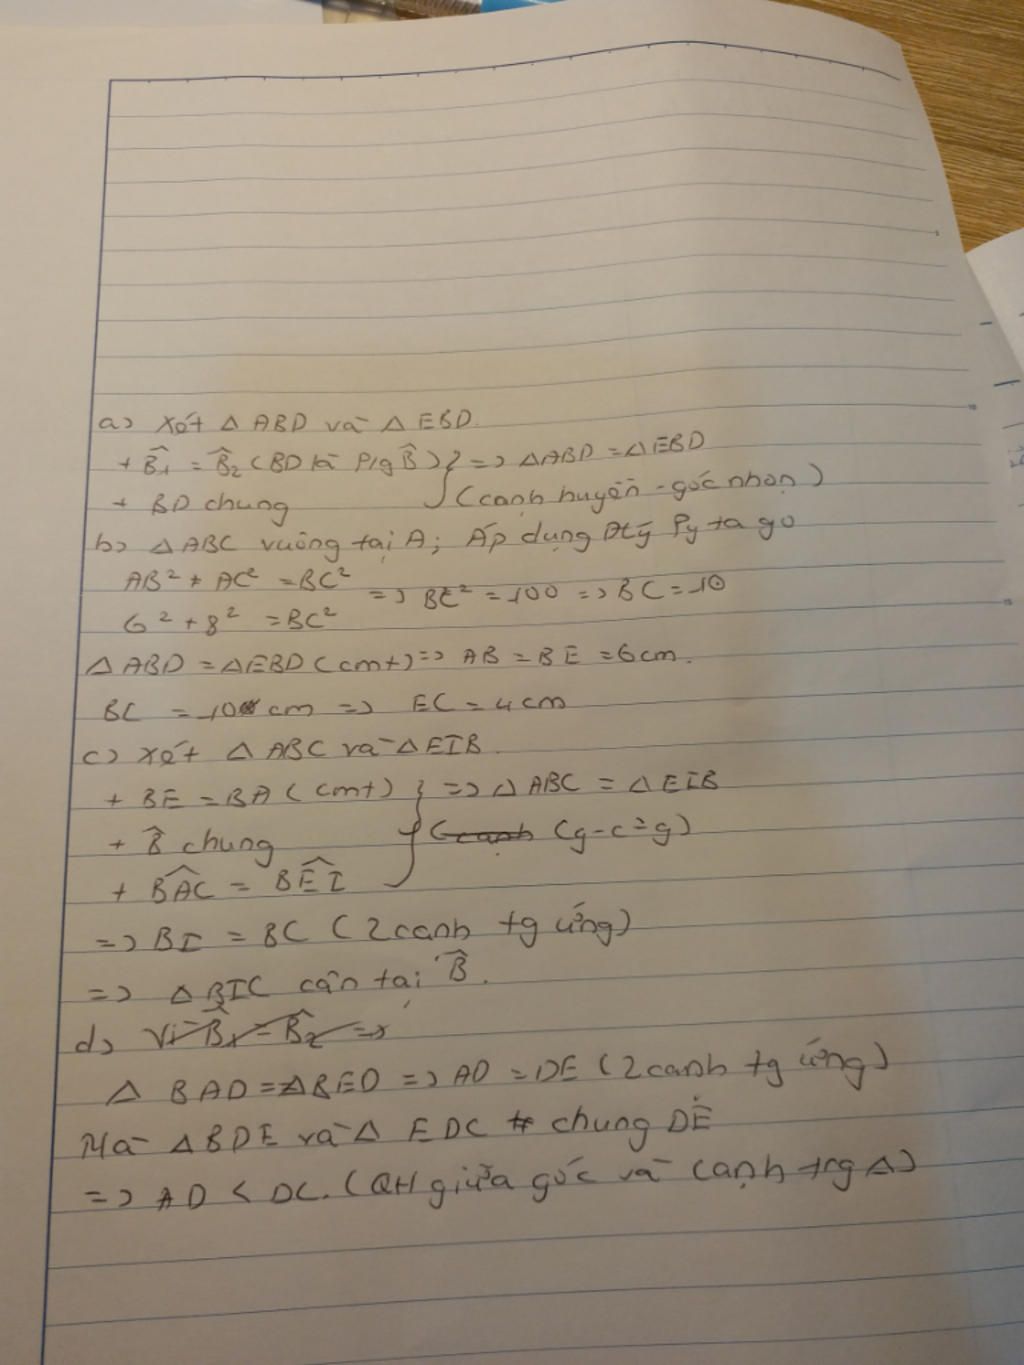 a) Xét △ ABD và △ EBD.
+ B̂₁ = B̂₂ (BD là P/g B̂) } => △ABD = △EBD
+ BD chung (cạnh huyền - góc nhọn)
b) △ABC vuông tại A; Áp dụng Đlý Py ta go
AB² + AC² = BC²
6² + 8² = BC² => BC² = 100 => BC = 10
△ ABD = △EBD (cmt) => AB = BE = 6cm.
BC = 10 cm => EC = 4cm
c) Xét △ ABC và △EIB.
+ BE = BA (cmt) } => △ ABC = △EIB
+ B̂ chung (g-c-g)
+ BÂC = BÊI
=> BI = BC (2 cạnh tg ứng)
=> △BIC cân tại B̂.
d) Vì B̂₁ = B̂₂ =>
△ BAD = △BED => AD = DE (2 cạnh tg ứng)
Mà △BDE và △ EDC chung DE
=> AD < DC. (QH giữa góc và cạnh trg △)